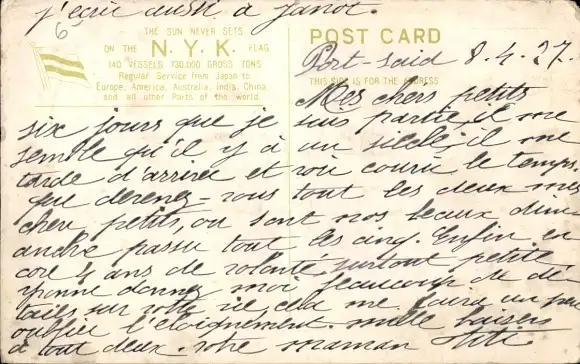 j'écris aussi à Janot.
6
THE SUN NEVER SETS
ON THE N.Y.K. FLAG
140 VESSELS 730.000 GROSS TONS
Regular Service from Japan to
Europe, America, Australia, India, China,
and all other Parts of the world.
POST CARD
Port-Saïd 8.4.27.
THIS SIDE IS FOR THE ADDRESS
Mes chers petits
six jours que je suis partie, il me
semble qu'il y a un siècle, il me
tarde d'arrivée et voir courir le temps.
que devenez-vous tout les deux mes
cher petits, ou sont nos beaux dim
anche passu tout les cinq. Enfin en
core 4 ans de volonté, surtout petite
Yvonne donnez moi beaucoup de dé
tails sur votre vie cela me fera un peu
oublier l'éloignement. mille baisers
à tout deux. votre maman